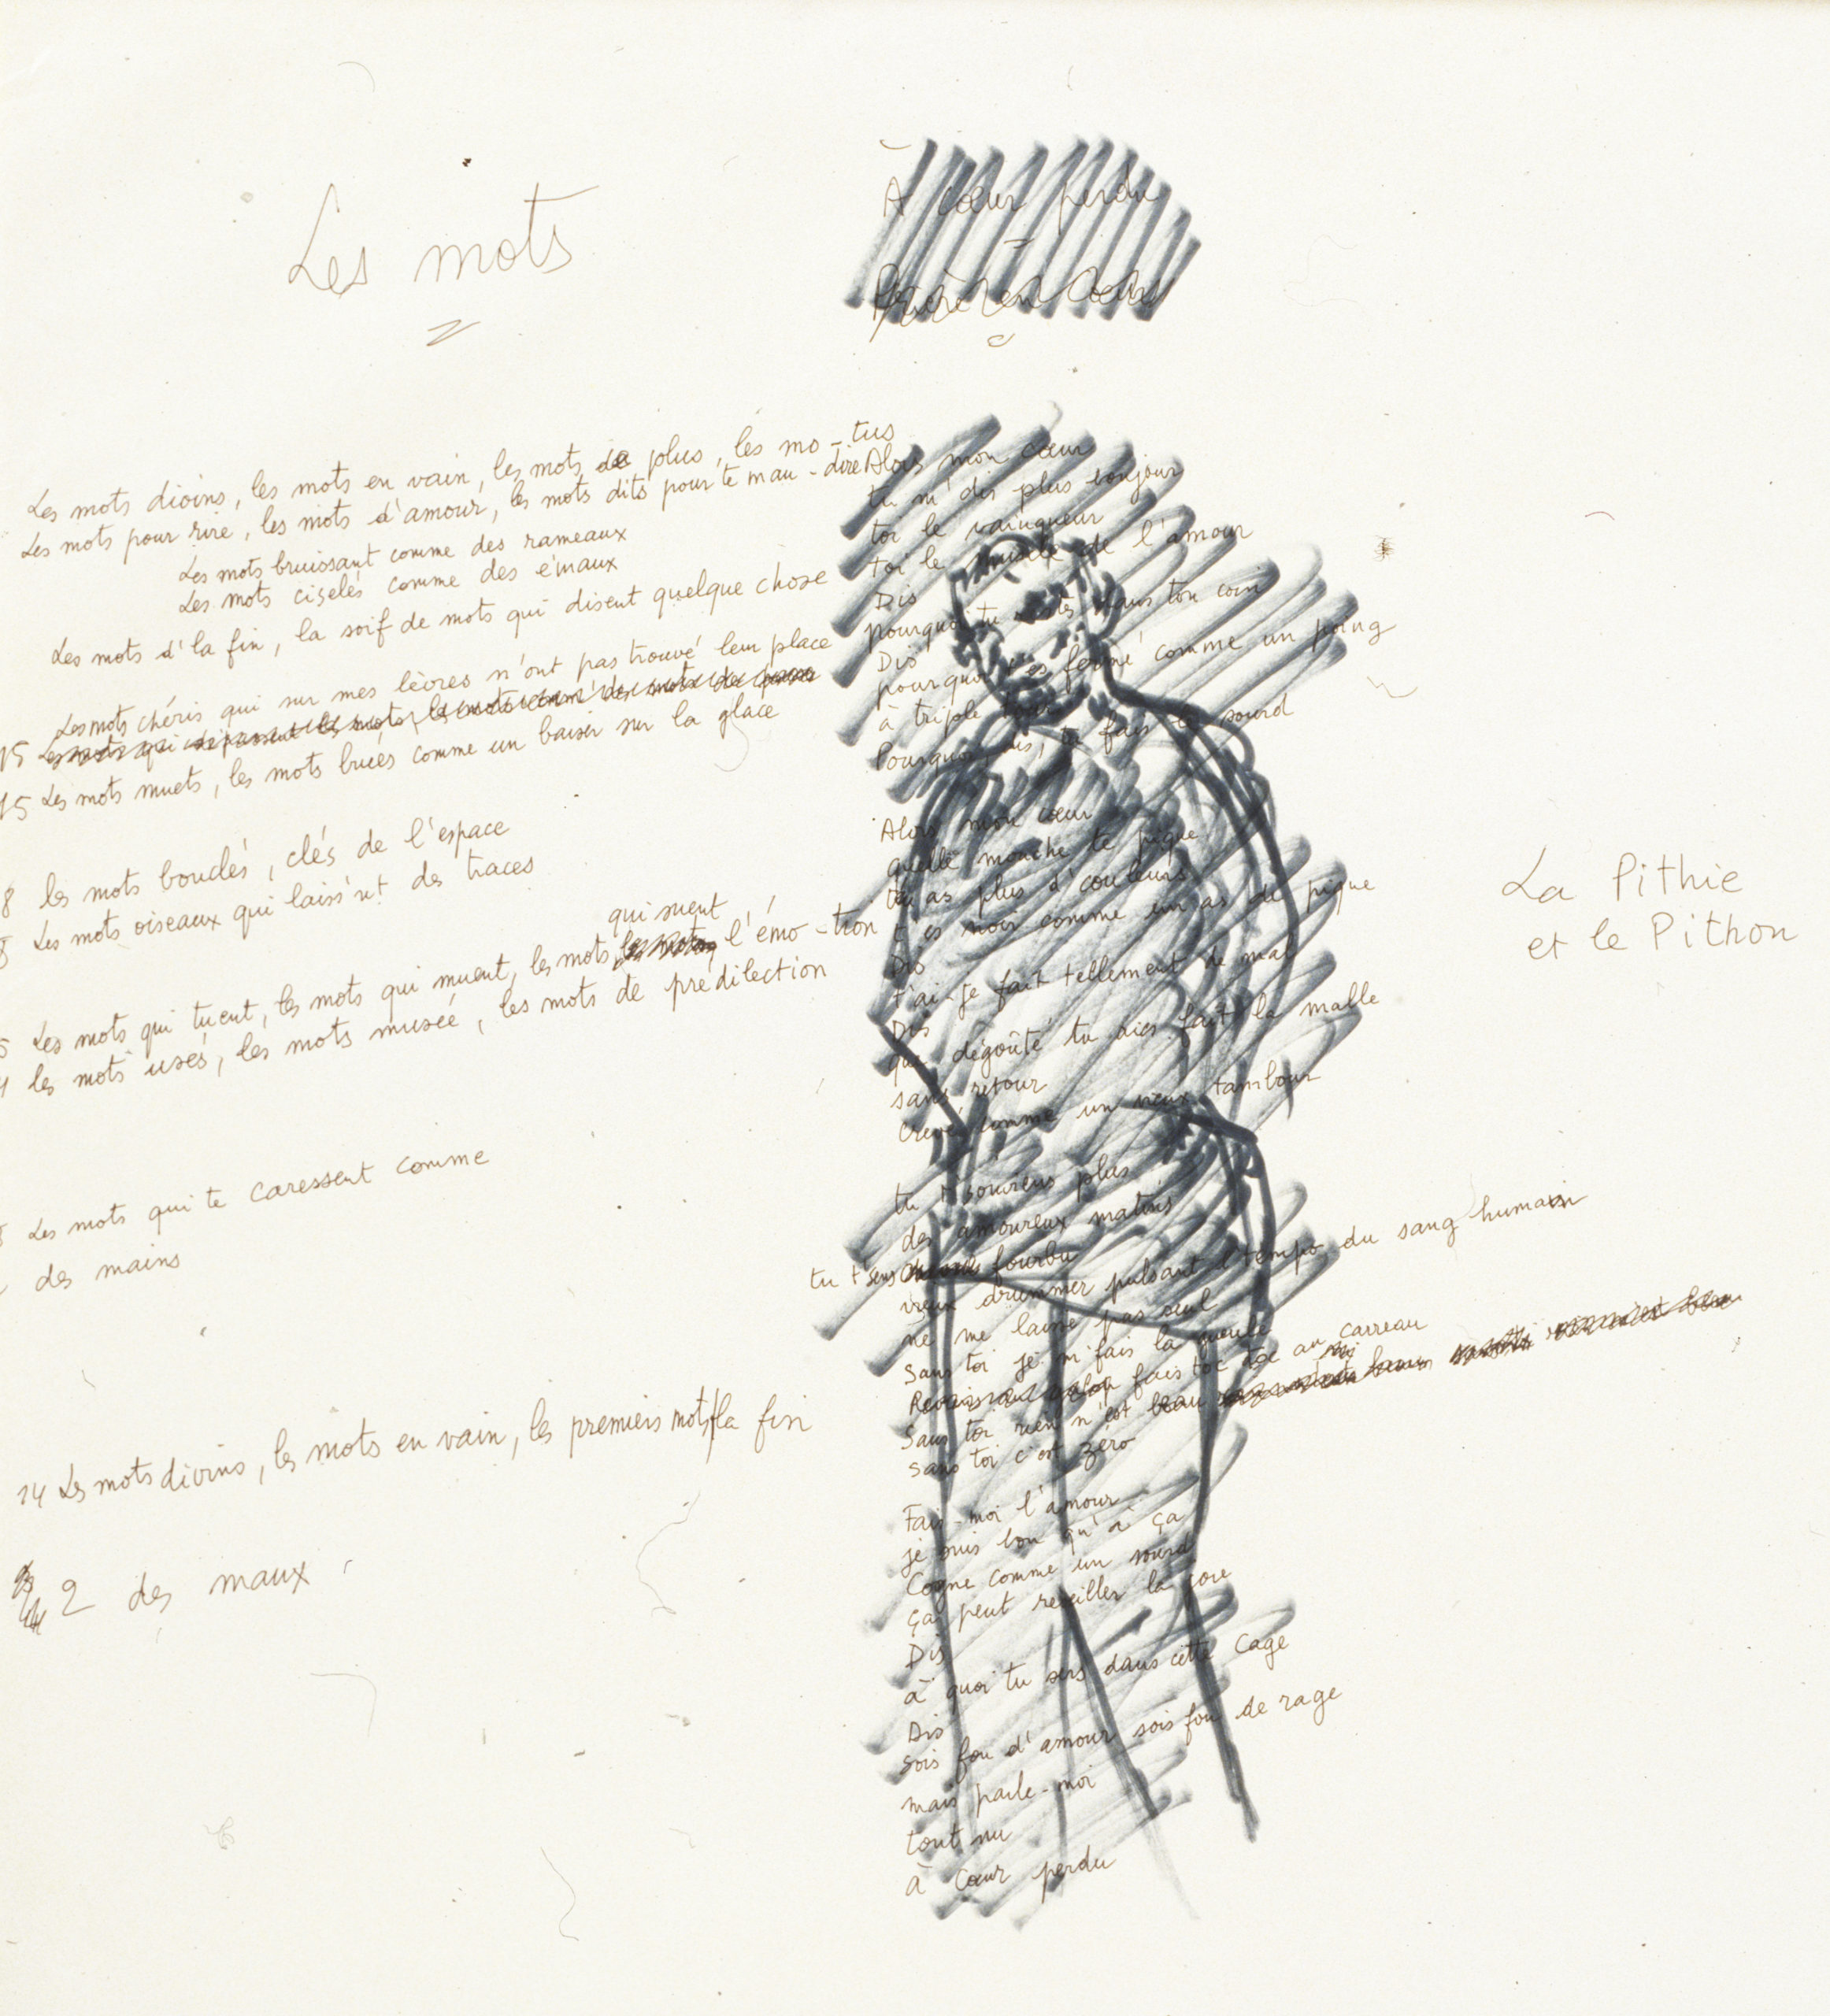 Les mots
Les mots divins, les mots en vain, les mots de plus, les mo-tus
Les mots pour rire, les mots d'amour, les mots dits pour te mau-dire
Les mots bruissant comme des rameaux
Les mots ciselés comme des émaux
Les mots d'la fin, la soif de mots qui disent quelque chose
Les mots chéris qui sur mes lèvres n'ont pas trouvé leur place
15 Les mots qui dépassent les mots, les mots comme des mots de
15 Les mots muets, les mots buées comme un baiser sur la glace
8 les mots bouclés, clés de l'espace
8 Les mots oiseaux qui laiss'nt des traces
qui suent
5 Les mots qui tuent, les mots qui muent, les mots les mots l'émo-tion
les mots usés, les mots musée, les mots de prédilection
8 Les mots qui te caressent comme
des mains
14 Les mots divins, les mots en vain, les premiers mots/la fin
2 des maux
À cœur perdu
Alors mon cœur
tu m'dis plus bonjour
toi le vainqueur
toi le muscle de l'amour
Dis
pourquoi tu restes dans ton coin
Dis
pourquoi t'es fermé comme un poing
à triple tour
Pourquoi, dis, tu fais le sourd
Alors mon cœur
quelle mouche te pique
tu as plus d'couleurs
t'es noir comme un as de pique
Dis
t'ai-je fait tellement de mal
Dis
que dégoûté tu aies fait la malle
sans retour
Crevé comme un vieux tambour
tu t'souviens plus
des amoureux matins
tu t'sens fourbu
vieux drummer pulsant l'tempo du sang humain
ne me laisse pas seul
Sans toi je m'fais la gueule
Reviens au galop fais toc toc au carreau
Sans toi rien n'est beau
Sans toi c'est zéro
Fais-moi l'amour
je suis bon qu'à ça
Cogne comme un sourd
ça peut réveiller la joie
Dis
à quoi tu sers dans cette cage
Dis
Sois fou d'amour sois fou de rage
mais parle-moi
tout nu
à cœur perdu
La Pithie
et le Pithon